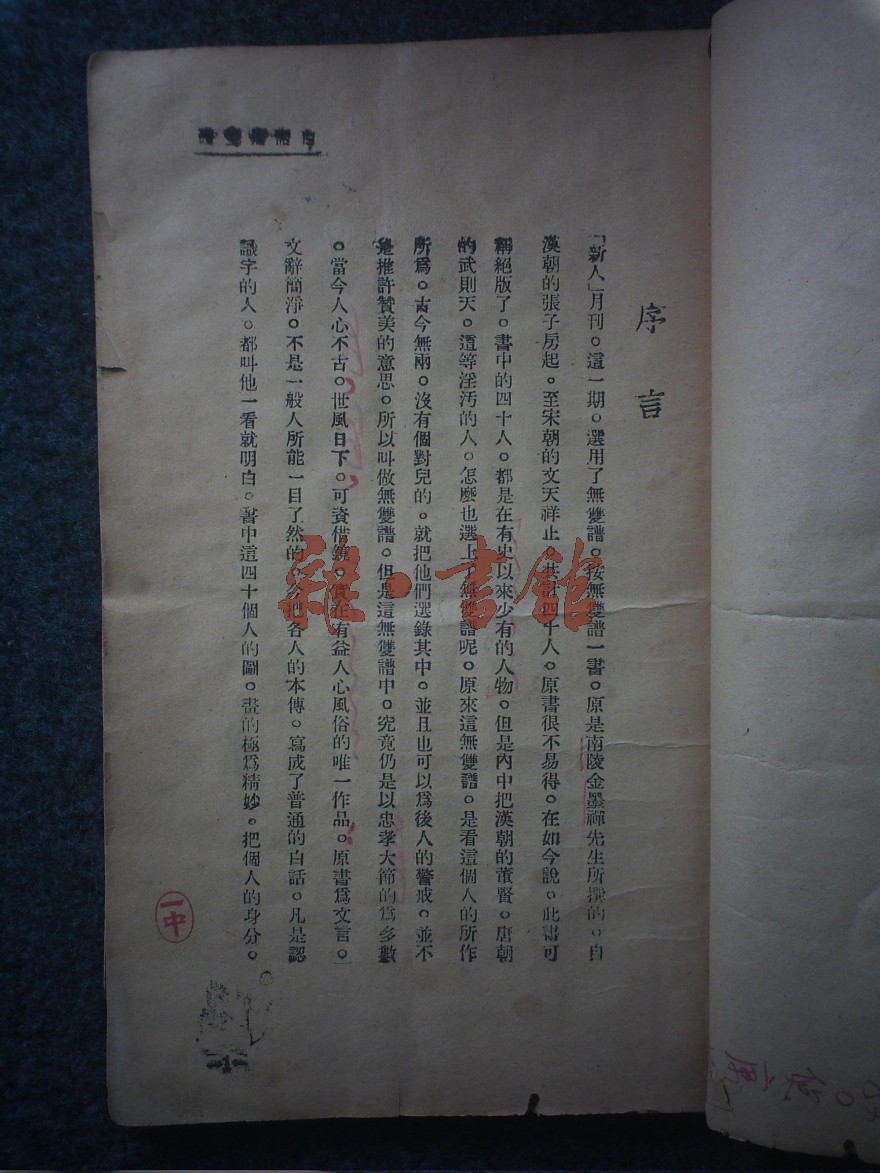 序言
「新人」月刊。這一期。選用了無雙譜。按無雙譜一書。原是南陵金墨禪先生所撰的。自
漢朝的張子房起。至宋朝的文天祥止。共計四十人。原書很不易得。在如今說。此書可
稱絕版了。書中的四十人。都是在有史以來少有的人物。但是內中把漢朝的董賢。唐朝
的武則天。這等淫污的人。怎麼也選上了無雙譜呢。原來這無雙譜。是看這個人的所作
所爲。古今無兩。沒有個對兒的。就把他們選錄其中。並且也可以爲後人的警戒。並不
是推許贊美的意思。所以叫做無雙譜。但是這無雙譜中。究竟仍是以忠孝大節的爲多數
。當今人心不古。世風日下。可資借鏡。實在有益人心風俗的唯一作品。原書爲文言。
文辭簡淨。不是一般人所能一目了然的。今把各人的本傳。寫成了普通的白話。凡是認
識字的人。都叫他一看就明白。書中這四十個人的圖。畫的極爲精妙。把個人的身分。
雜·書館
一中